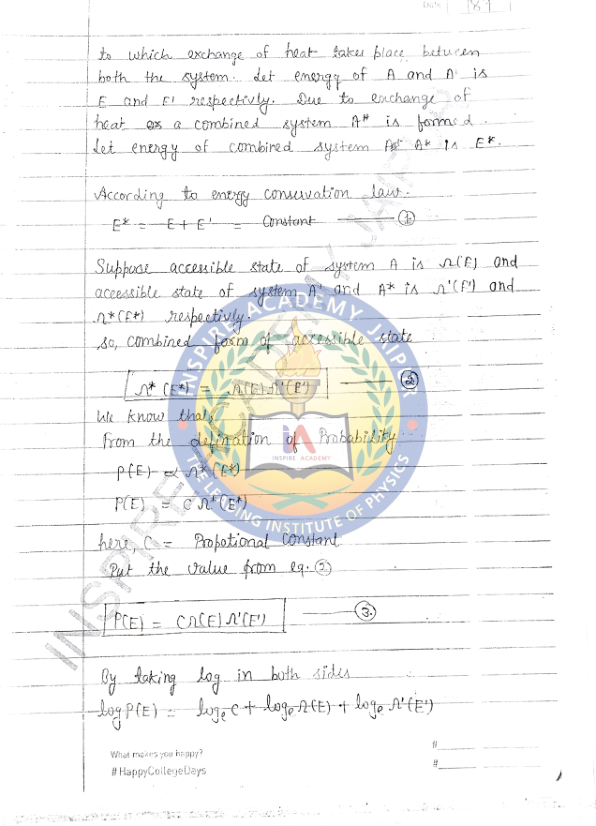 Date 187
to which exchange of heat takes place between
both the system. Let energy of A and A' is
E and E' respectivly. Due to exchange of
heat a combined system A* is formed.
Let energy of combined system A* is E*.
According to energy conservation law.
E* = E + E' = Constant ——— ①
Suppose accessible state of system A is Ω(E) and
accessible state of system A' and A* is Ω'(E') and
Ω*(E*) respectivly.
so, combined form of accessible state
Ω*(E*) = Ω(E) Ω'(E') ——— ②
We know that,
From the defination of Probability
P(E) ∝ Ω*(E*)
P(E) = C Ω*(E*)
here, C = Propotional Constant
Put the value from eq. ②
P(E) = CΩ(E) Ω'(E') ——— ③.
By taking log in both sides
log P(E) = logₑ C + logₑ Ω(E) + logₑ Ω'(E')
What makes you happy?
#HappyCollegeDays
#
#
INSPIRE ACADEMY JAIPUR
iA
INSPIRE ACADEMY
THE LEADING INSTITUTE OF PHYSICS
INSPIRE ACADEMY JAIPUR